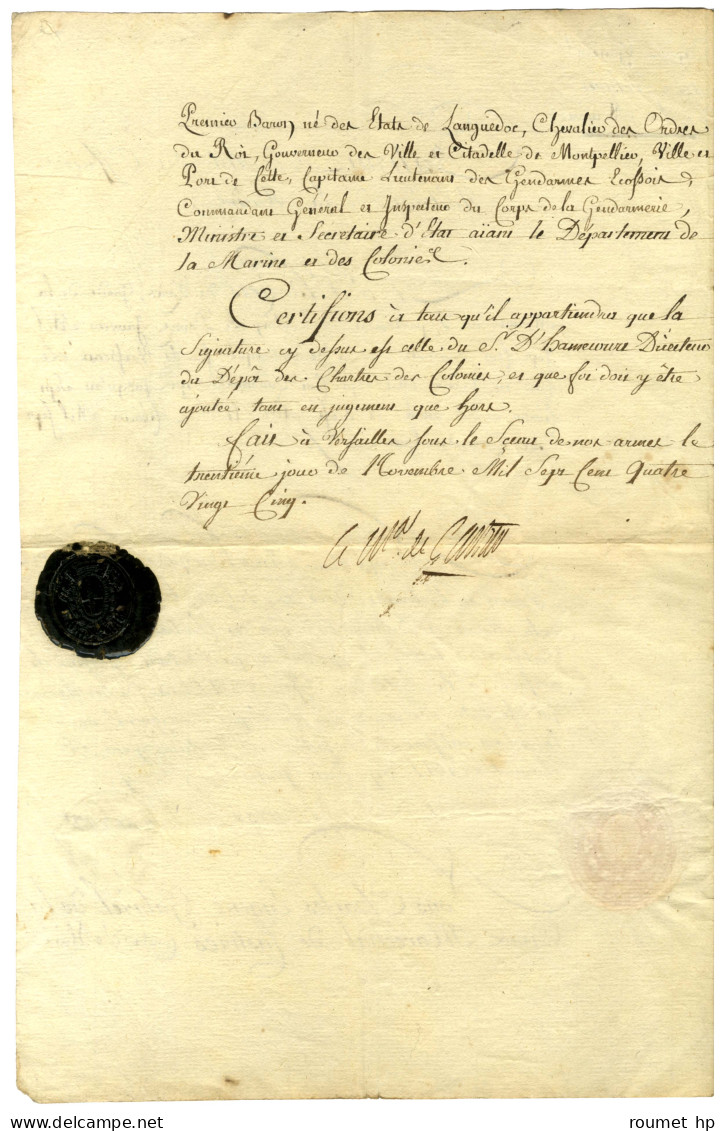 Premier Baron né des Etats de Languedoc, Chevalier des Ordres
du Roi, Gouverneur des Ville et Citadelle de Montpellier, Ville et
Port de Cette, Capitaine Lieutenant des Gendarmes Ecossois,
Commandant Général et Inspecteur du Corps de la Gendarmerie,
Ministre et Secretaire d'Etat aïant le Département de
la Marine et des Colonies.
Certifions à tous qu'il appartiendra que la
Signature cy dessus est celle du Sr. D'hamecourt Directeur
du Dépôt des Chartres des Colonies, et que foi doit y être
ajoutée tant en jugement que hors.
fait à Versailles sous le Sceau de nos armes le
trentiéme jour de Novembre Mil Sept Cent Quatre
Vingt Cinq.
le mal. de Castries
roumet hp